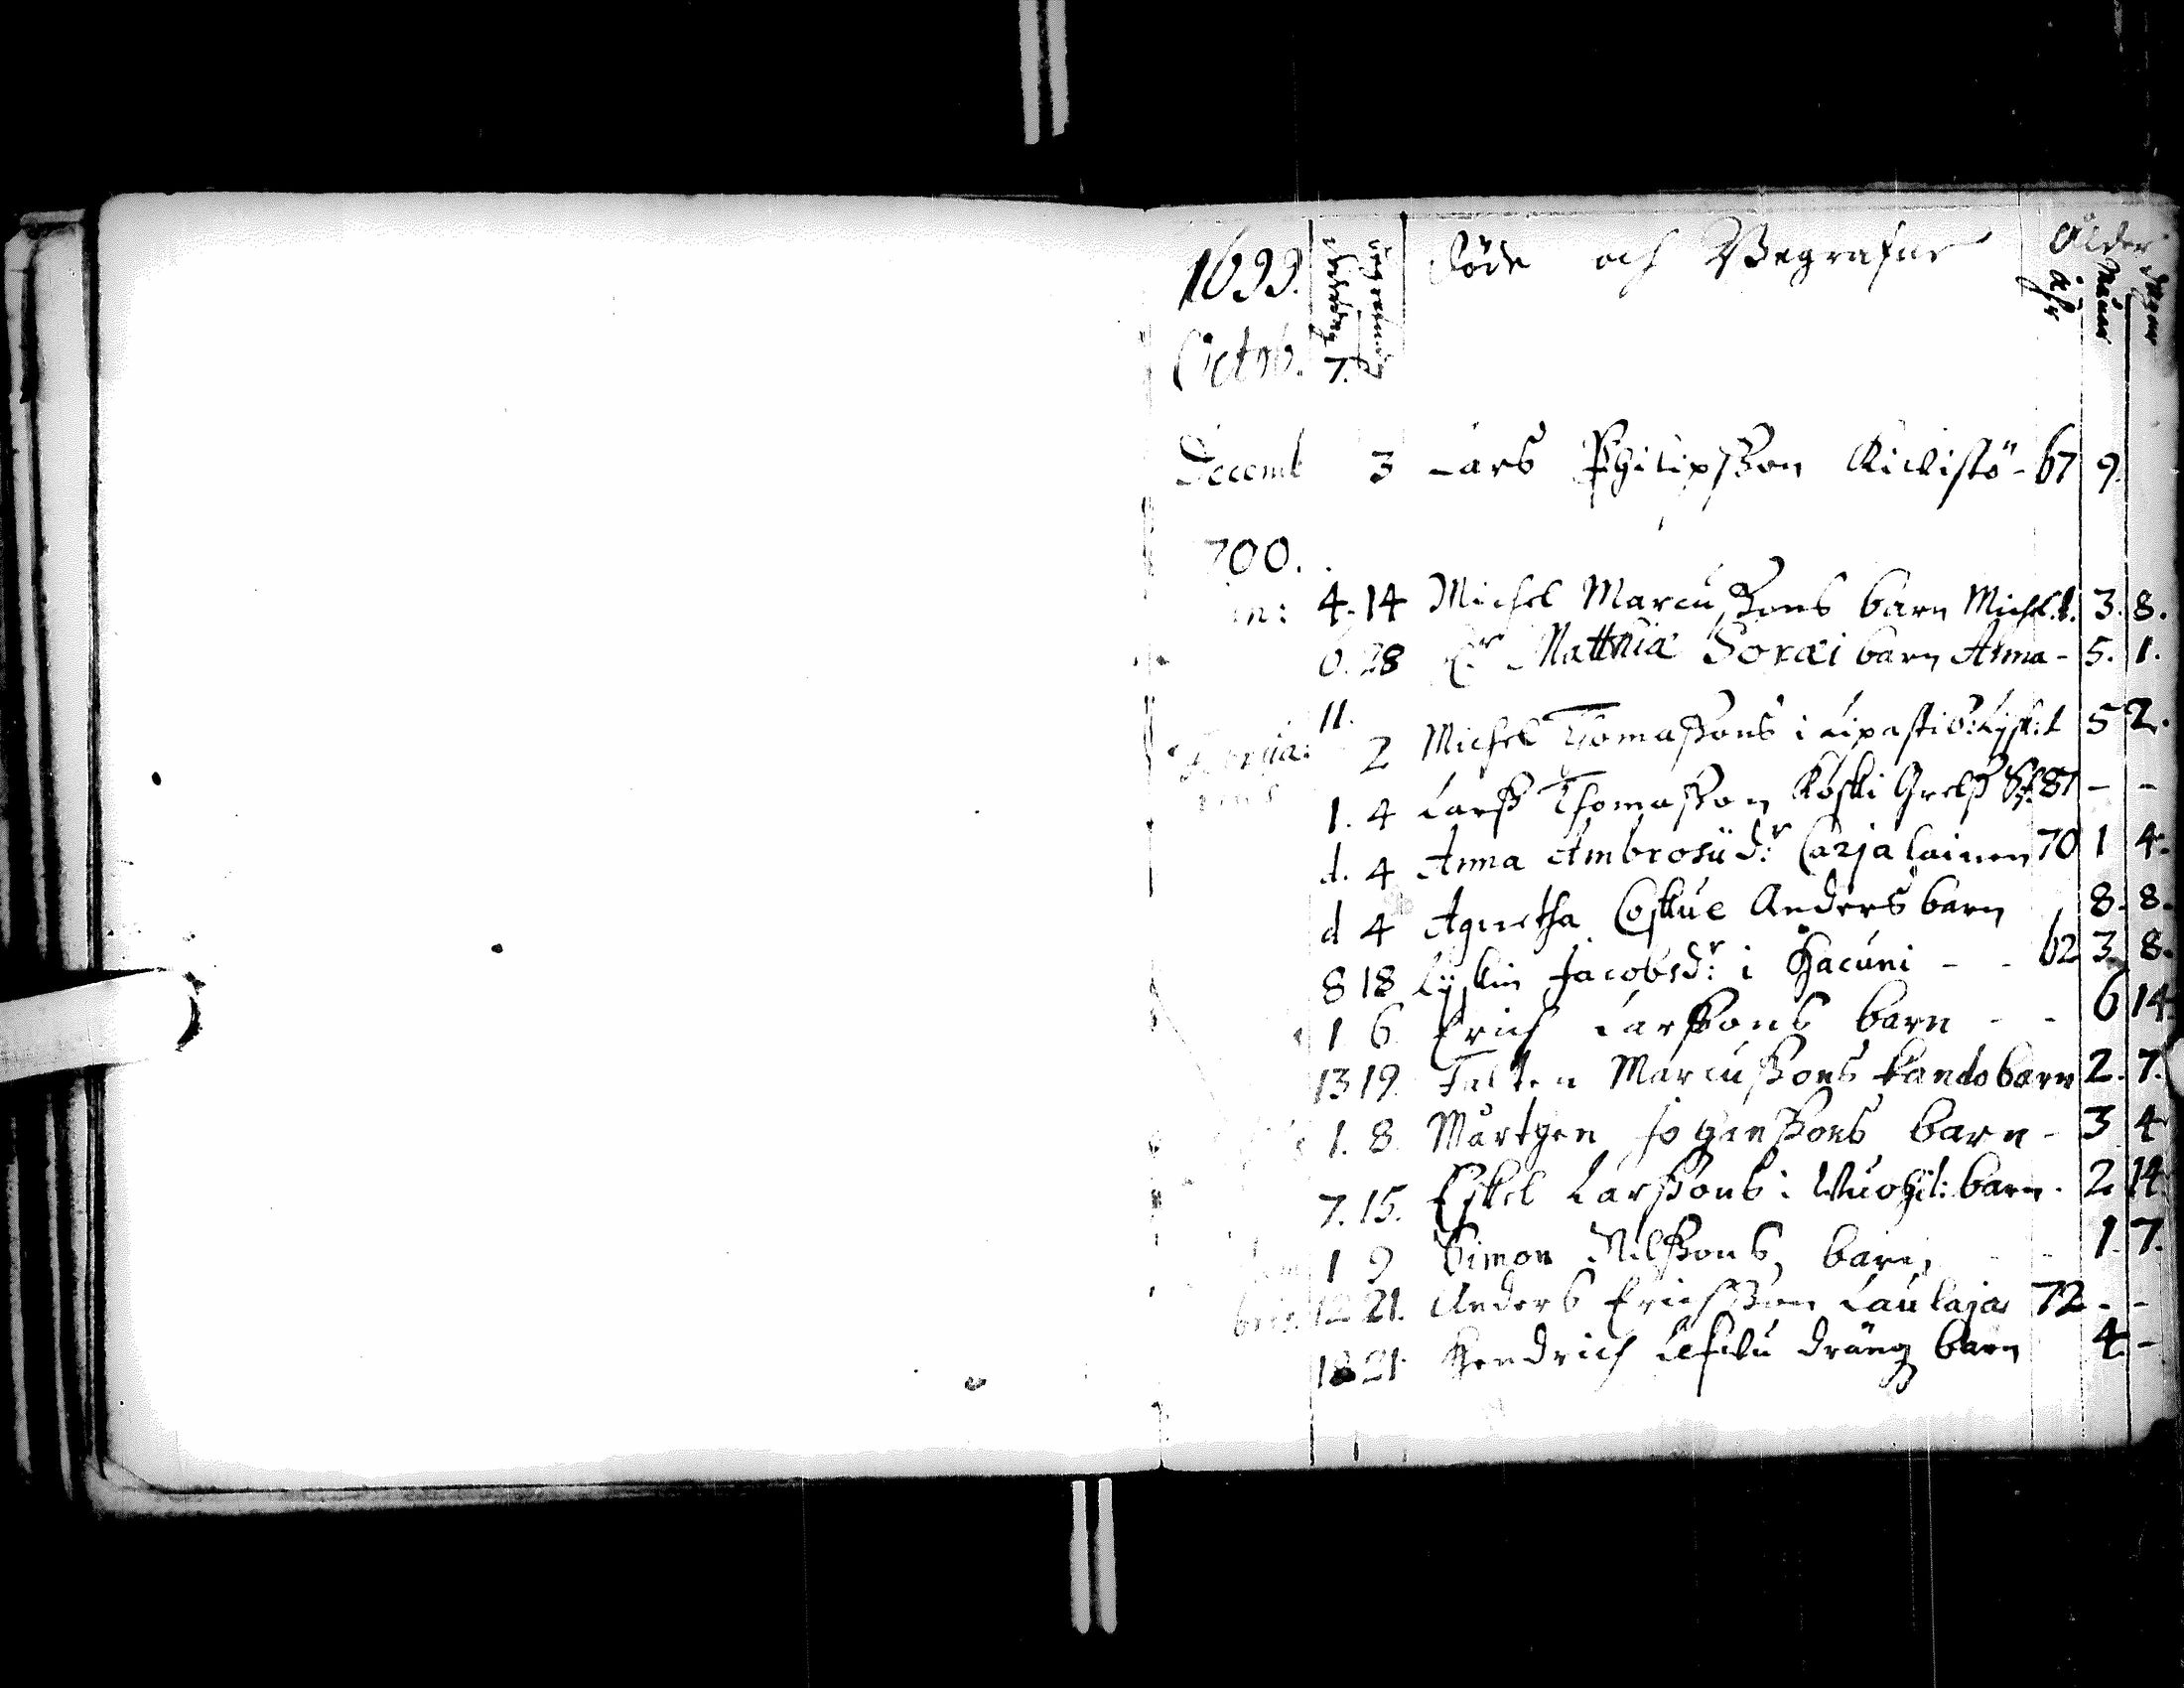 1699. döde och Begrafne Ålder
åhr Månar dagar
Octob. 7.
Decemb 3 Lars Philipsson Kilistö - 67 9.
700.
4. 14 Michel Marcussons barn Mich.l. 3. 8.
6. 28 Matthiæ Soræi barn Anna - 5. 1.
11.
2 Michel Thomassons i Lipasti 5 2.
1. 4 Larss Thomasson Koski 87 - -
d. 4 Anna Ambrosiid:r Carjalainen 70 1 4.
d 4 Agnetha Anders barn 8. 8.
8 18 Lijskin Jacobsd:r i Hacuni - - 62 3. 8.
1 6. Erich Larssons barn - - 6 14.
13 19. Falten Marcussons barn 2. 7.
1. 8. Mårtgen Johanssons barn - 3 4
7. 15. Eskel Larssons i Wuohil: barn. 2 14.
1 9 Simon Nilssons barn - - 1. 7.
bris. 12 21. Anders Erichsson Laulaja 72 - -
18 21. Hendrich dräng barn 4. -